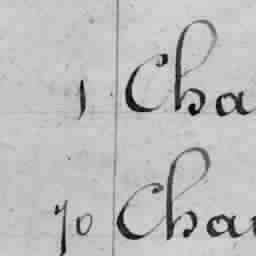 1 Cha
70 Cha